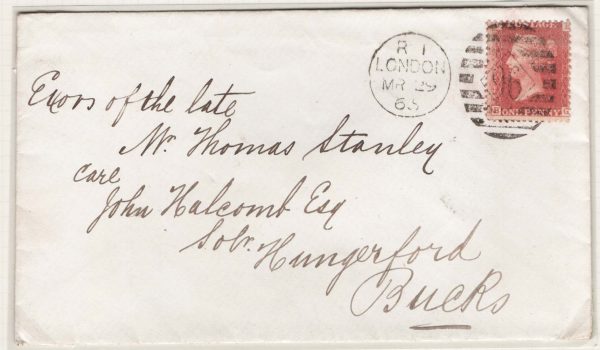 R 1
LONDON
MR 29
63
96
ONE PENNY
Exors of the late
Mr. Thomas Stanley
care
John Halcomb Esq
Solr. Hungerford
Bucks